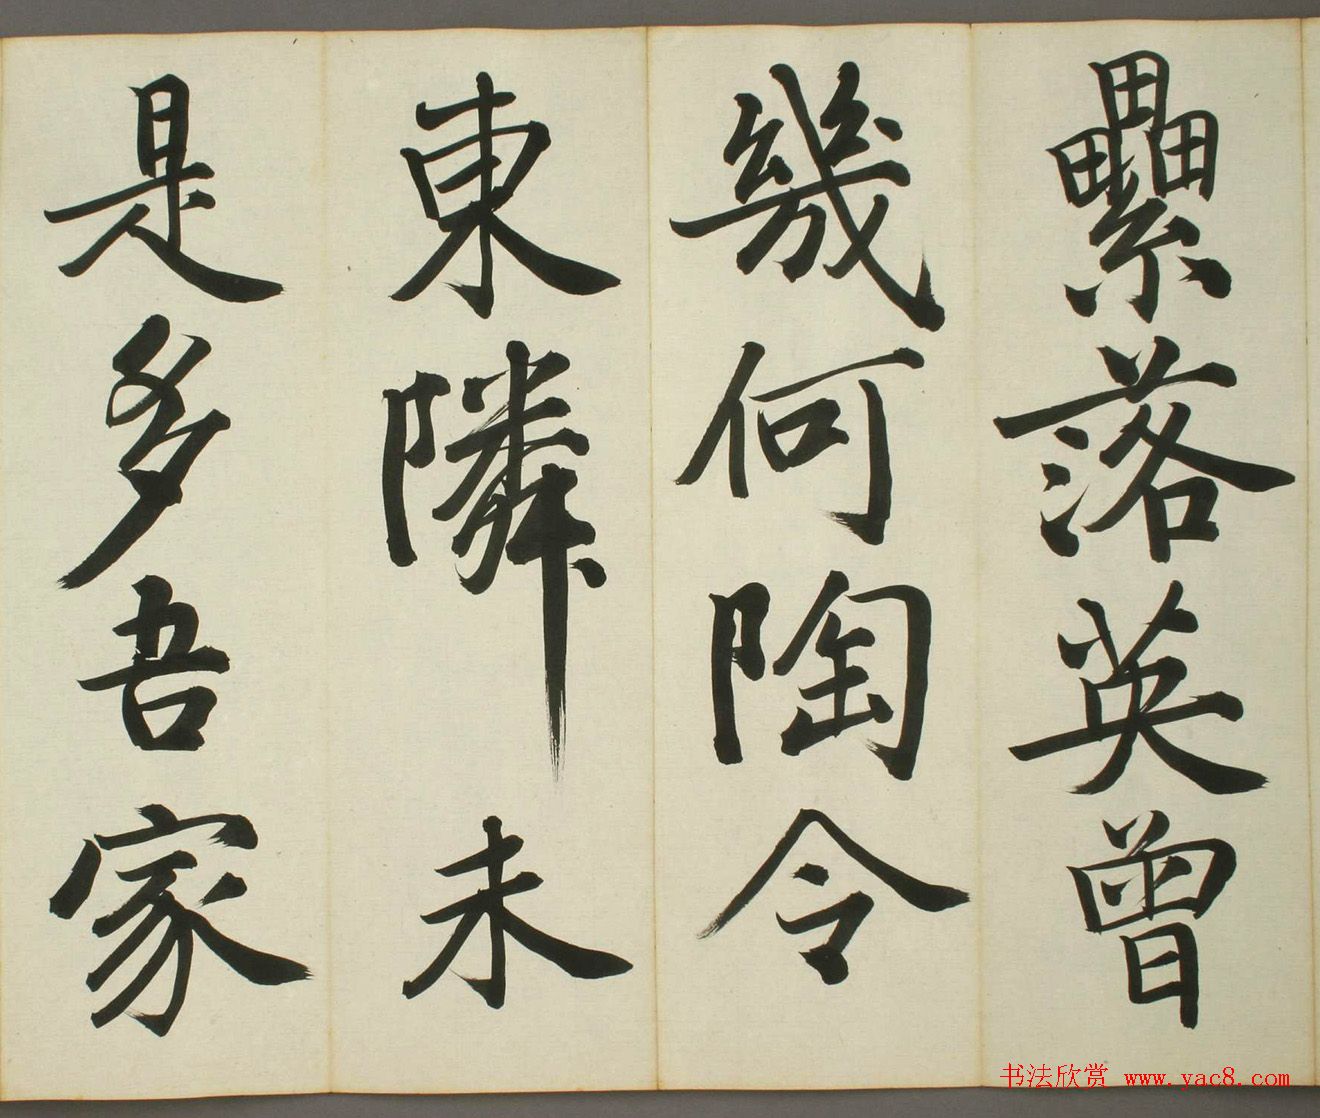 纍落英曽
幾何陶令
東隣未
是多吾家
书法欣赏 www.yac8.com